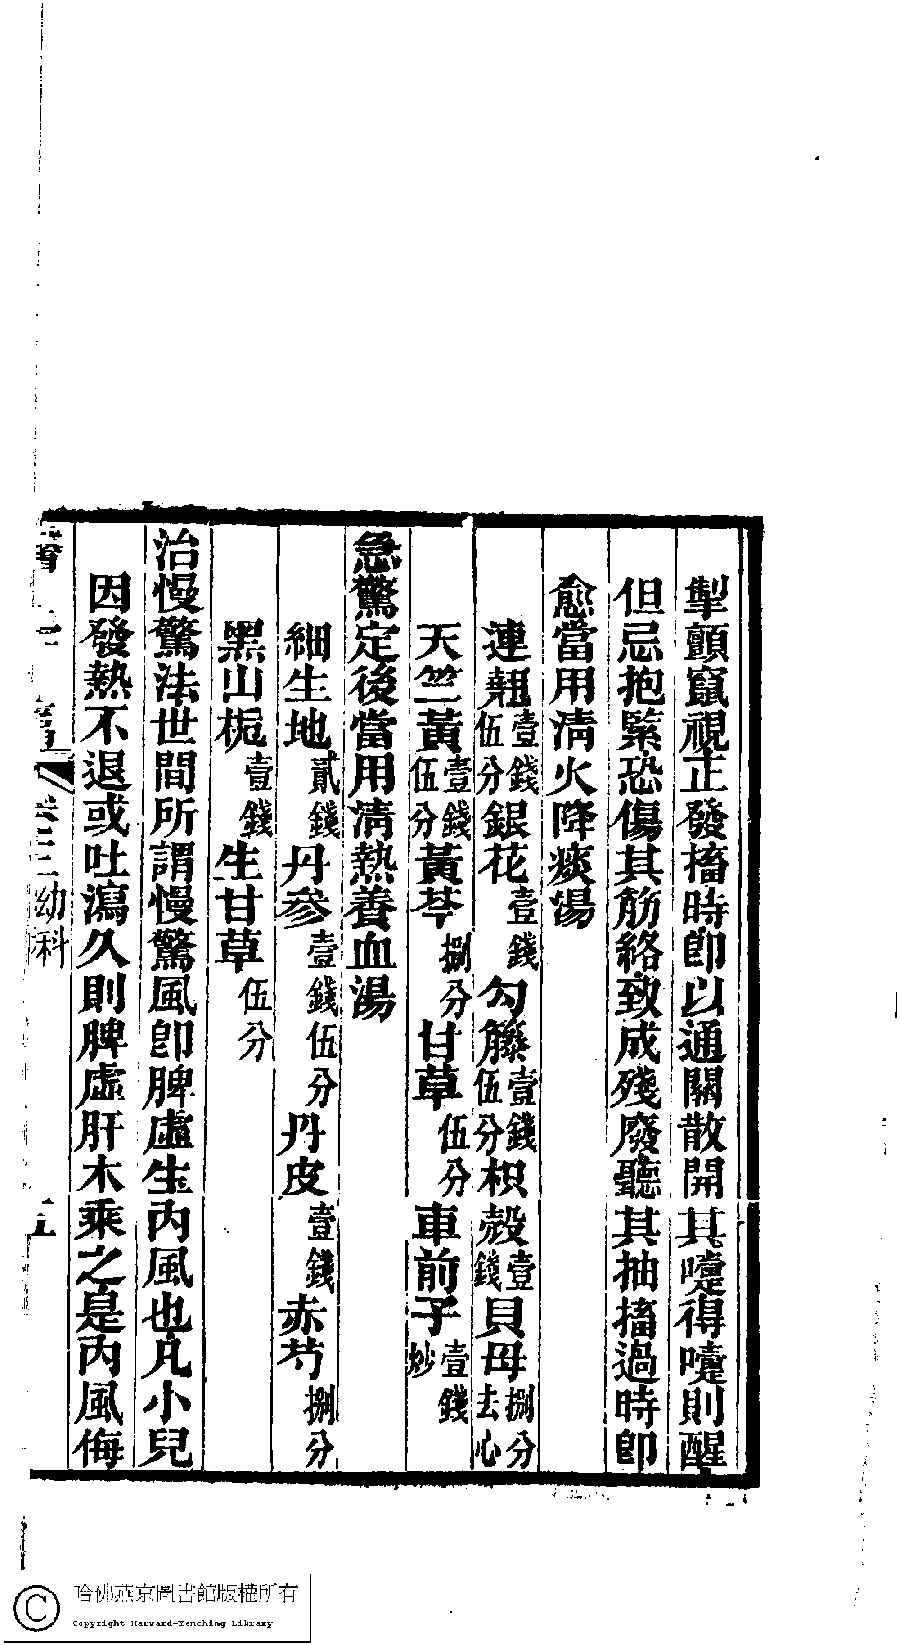 掣顫竄視正發搐時卽以通關散開其嚏得嚏則醒
但忌抱緊恐傷其筋絡致成殘廢聽其抽搐過時卽
愈當用淸火降痰湯
連翹壹錢伍分銀花壹錢勾籐壹錢伍分枳殼壹錢貝母捌分去心
天竺黃壹錢伍分黃芩捌分甘草伍分車前子壹錢炒
急驚定後當用淸熱養血湯
細生地貳錢丹參壹錢伍分丹皮壹錢赤芍捌分
黑山梔壹錢生甘草伍分
治慢驚法世間所謂慢驚風卽脾虛生內風也凡小兒
因發熱不退或吐瀉久則脾虛肝木乘之是內風侮
幼科
五
哈佛燕京圖書館版權所有
Copyright Harvard-Yenching Library